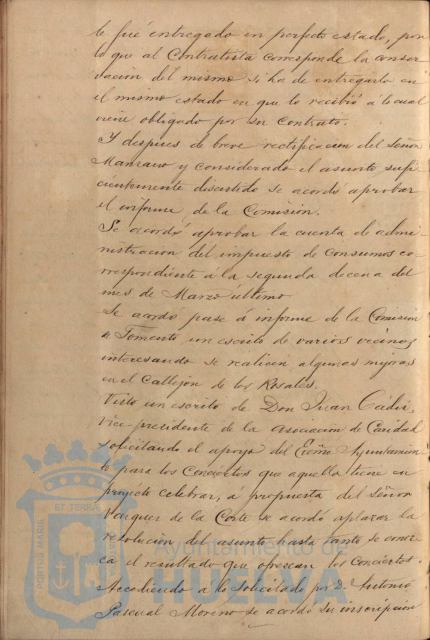 le fué entregado en perfecto estado, por
lo que al Contratista corresponde la conser
vacion del mismo si ha de entregarlo en
el mismo estado en que lo recibió á lo cual
viene obligado por su Contrato.
Y despues de breve rectificacion del Señor
y considerado el asunto sufi
cientemente discutido se acordó aprobar
el informe de la Comisión.
Se acordó aprobar la cuenta de admi-
nistracion del impuesto de Consumos co-
rrespondiente á la segunda decena del
mes de Marzo último
Se acordó pase á informe de la Comision
de Fomento un escrito de varios vecinos
interesando se realicen algunas mejoras
en el Callejon de los Rosales.
Visto un escrito de Don Juan Cádiz,
Vice-presidente de la Asociacion de Caridad
solicitando el apoyo del Excmo Ayuntamien-
to para los Conciertos que aquella tiene en
proyecto celebrar, a propuesta del Señor
Vazquez de la Corte se acordó aplazar la
resolucion del asunto hasta tanto se conoz
ca el resultado que ofrezcan los Conciertos.
Accediendo á lo solicitado por D. Antonio
Pascual Moreno se acordó su inscripcion
PORTUS MARIS ET TERRÆ
Ayuntamiento de
HUELVA